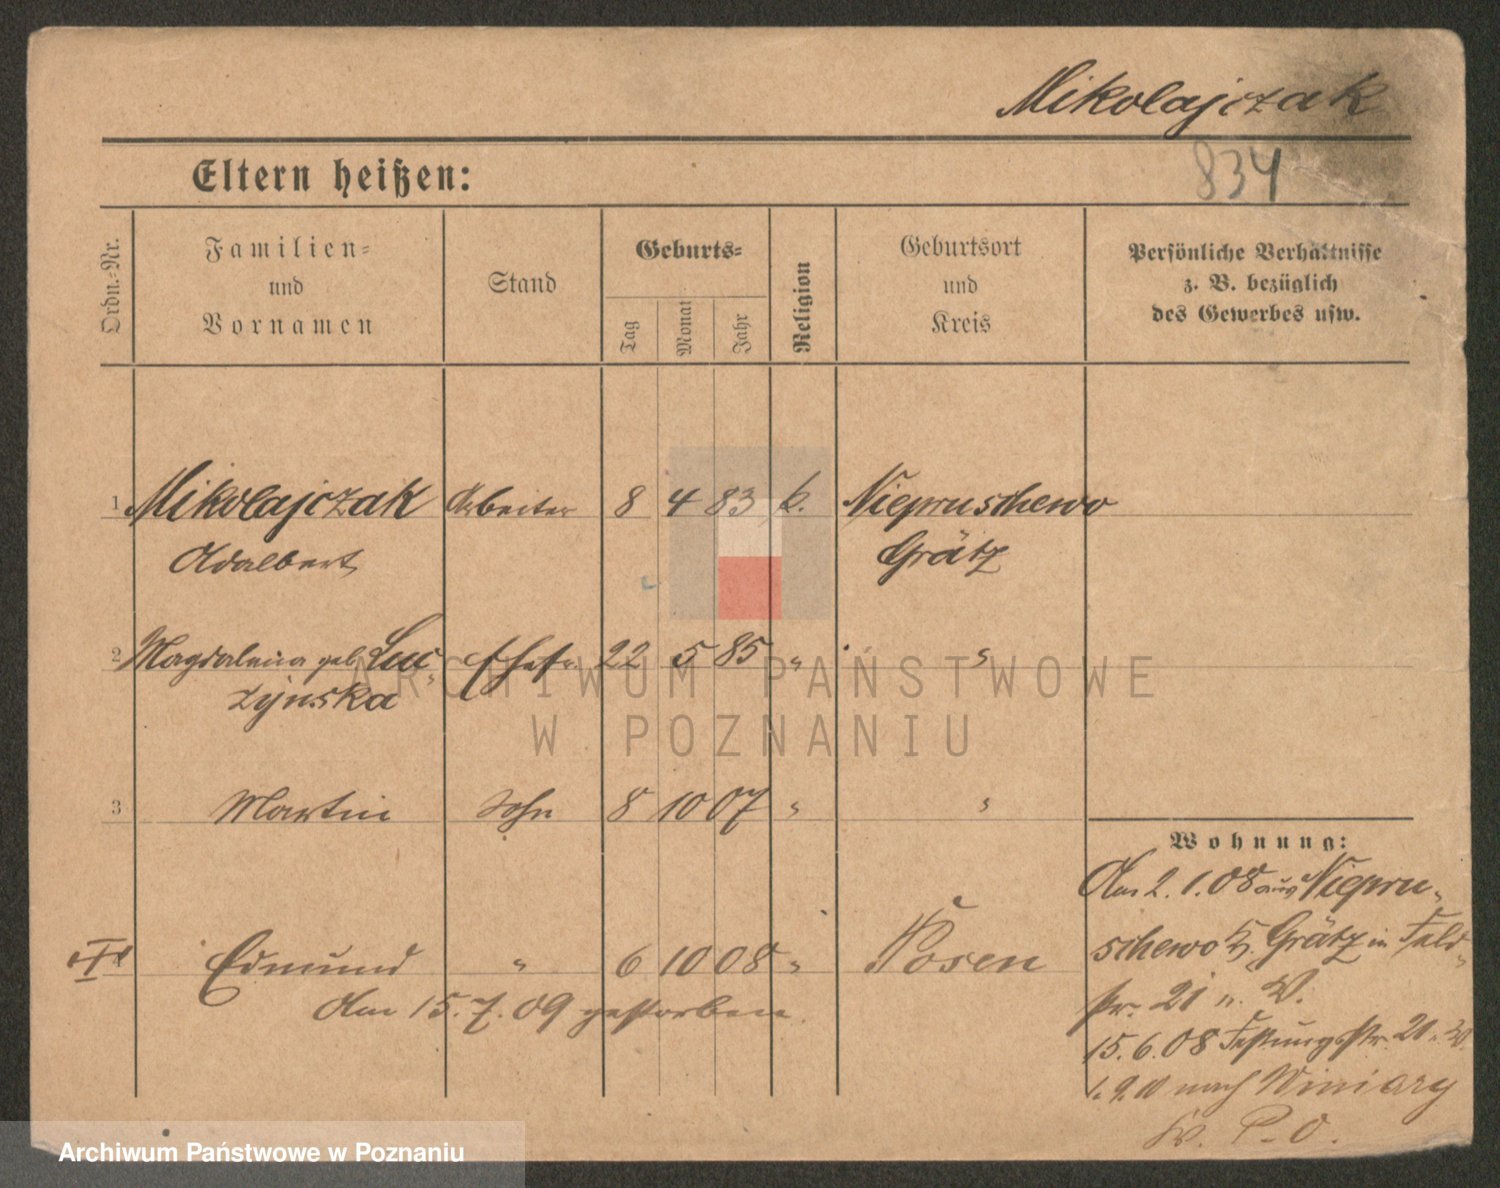 Mikolajczak
834
Eltern heißen:
Ordn.-Nr.
Familien-
und
Vornamen
Stand
Geburts-
Tag
Monat
Jahr
Religion
Geburtsort
und
Kreis
Persönliche Verhältnisse
z. B. bezüglich
des Gewerbes usw.
1 Mikolajczak Arbeiter 8 4 83 k. Niepruschewo
Adalbert Grätz
2 Magdalena geb. Luc- Ehefr. 22 5 85 " "
zynska
3 Martin Sohn 8 10 07 " "
Wohnung:
Am 2.1.08 aus Niepru-
schewo Kr. Grätz in Feld-
str. 21 n. W.
15.6.08 Festungsstr. 21. W.
1.9.10 nach Winiary
Kr. P.-O.
Edmund " 6 10 08 " Posen
Am 15.7.09 gestorben.
ARCHIWUM PAŃSTWOWE
W POZNANIU
Archiwum Państwowe w Poznaniu